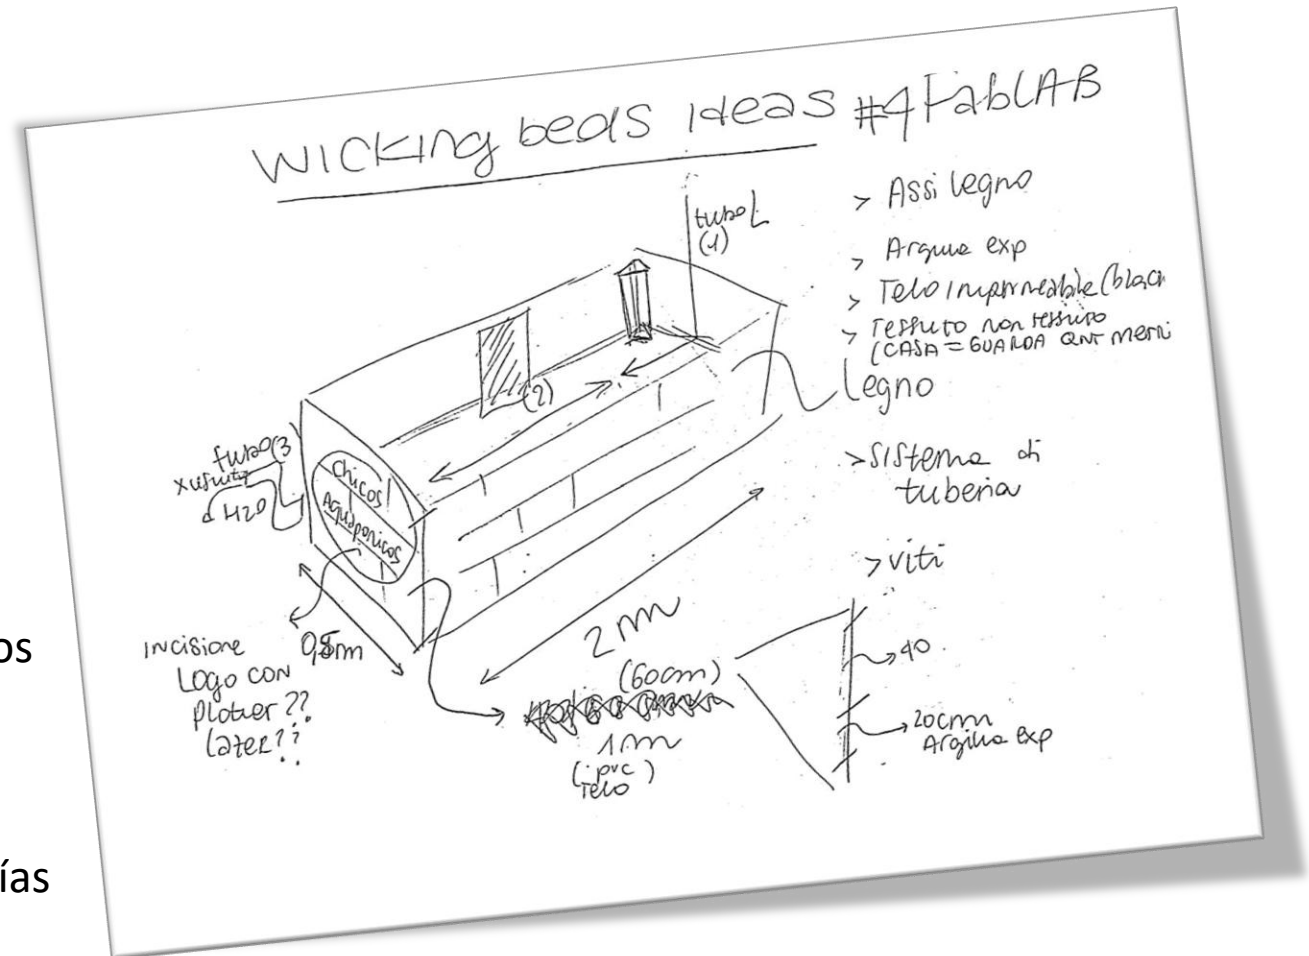 wicking beds ideas #4FabLAB
> Assi legno
> Argilla exp
> Telo impermeabile (black
> Tessuto non tessuto
(CASA = GUARDA QNT metri
legno
> sistema di
tuberia
> viti
tubo L
(1)
(2)
tubo (3
x
d H2O
Chicos
Aquaponicos
incisione
Logo con
plotter??
lazer??
0,5m
2 m
(60cm)
1m
(pvc)
Telo
40
20cm
Argilla exp
os
ías